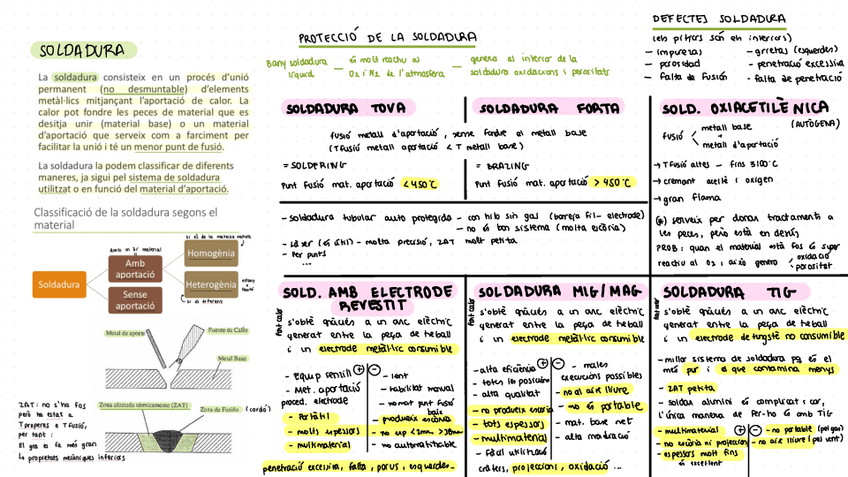 SOLDADURA
La soldadura consisteix en un procés d'unió
permanent (no desmuntable) d'elements
metàl·lics mitjançant l'aportació de calor. La
calor pot fondre les peces de material que es
desitja unir (material base) o un material
d'aportació que serveix com a farciment per
facilitar la unió i té un menor punt de fusió.
La soldadura la podem classificar de diferents
maneres, ja sigui pel sistema de soldadura
utilitzat o en funció del material d'aportació.
Classificació de la soldadura segons el
material
Soldadura
Amb un 3r material
Amb
aportació
Sense
aportació
Homogènia
Heterogènia
si es diferent
Metal de aporte
Fuente de Calor
Metal Base
Zona afectada térmicamente (ZAT)
Zona de Fusión (cordó)
ZAT: no s'ha fos
però ha estat a
T properes a T fusió,
per tant:
El gra es fa més gran
↓ propietats mecàniques inferiors
PROTECCIÓ DE LA SOLDADURA
Bany soldadura líquid — és molt reactiu al O₂ i N₂ de l'atmosfera — genera al interior de la soldadura oxidacions i porositats
DEFECTES SOLDADURA
(els pitjors són els interiors)
- Impureses
- porositat
- Falta de fusión
- grietas (esquerdes)
- penetració excessiva
- falta de penetració
SOLDADURA TOVA
SOLDADURA FORTA
fusió metall d'aportació, sense fondre el metall base
(T fusió metall aportació < T metall base)
= SOLDERING
Punt Fusió mat. aportació < 450°C
= BRAZING
Punt Fusió mat. aportació > 450°C
- Soldadura tubular auto protegida - con hilo sin gas (barreja fil-electrode)
- no és bon sistema (molta escòria)
- Làser (és útil) - molta precisió, ZAT molt petita
- Per punts
...
SOLD. OXIACETILÈNICA
(AUTÒGENA)
fusió
metall base
metall d'aportació
→ T fusió altes - fins 3100°C
→ cremant acetilè i oxigen
→ gran flama
(*) serveix per donar tractaments a
les peces, però està en desús
PROB: quan el material està fos és super
reactiu al O₂ i això genera
oxidació
porositat
SOLD. AMB ELECTRODE
REVESTIT
s'obté gràcies a un arc elèctric
generat entre la peça de treball
i un electrode metàl·lic consumible
⊕
- Equip senzill
- Met. aportació
proced. electrode
- Portàtil
- molts espessors
- multimaterial
⊖
- lent
- habilitat manual
- no mat punt fusió
baix
- produeix escòria
- no esp <2mm >38mm
- no automatitzable
penetració excessiva, falta, porus, esquerdes...
SOLDADURA MIG/MAG
s'obté gràcies a un arc elèctric
generat entre la peça de treball
i un electrode metàl·lic consumible
⊕
- alta eficiència
- totes les posicions
- alta qualitat
- no produeix escòria
- tots espessors
- multimaterial
- Fàcil utilització
⊖
- males
execucions possibles
- no al aire lliure
- no és portable
- mat. base net
- alta radiació
cràters, projeccions, oxidació...
SOLDADURA TIG
s'obté gràcies a un arc elèctric
generat entre la peça de treball
i un electrode de tungstè no consumible
- millor sistema de soldadura pq és el
més pur i el que contamina menys
- ZAT petita
- soldar alumini és complicat i car,
l'única manera de fer-ho és amb TIG
⊕
- multimaterial
- no escòria ni projeccions
- espessors molt fins
és excel·lent
⊖
- no portable (pel gas)
- no aire lliure (pel vent)